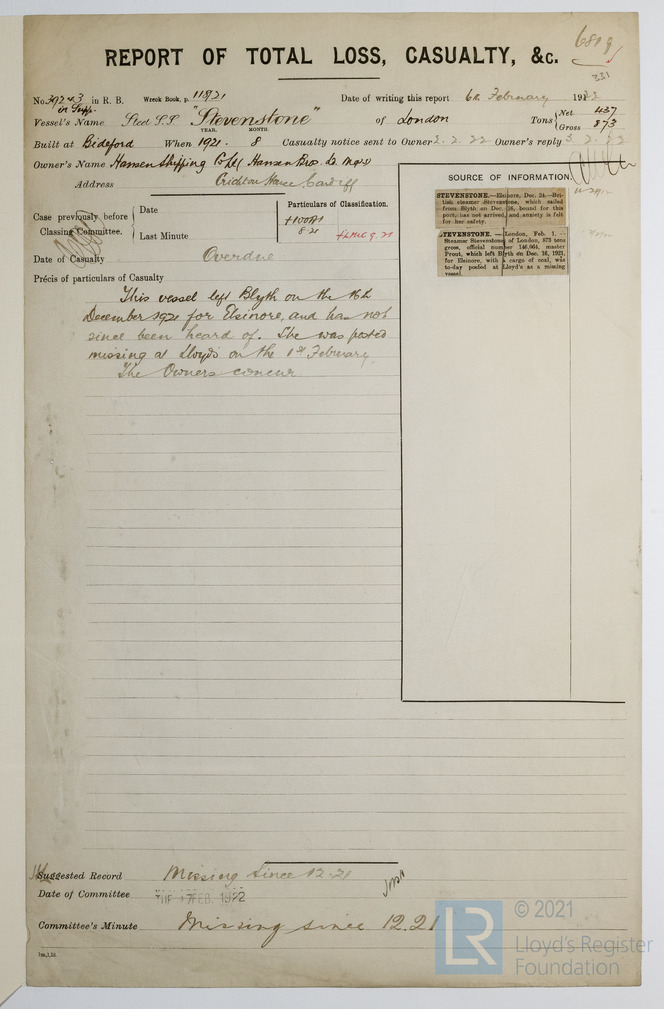 6809
331
REPORT OF TOTAL LOSS, CASUALTY, &c.
No. 39243 in R. B. Wreck Book, p. Date of writing this report 6th February 1922
in Supp.
Vessel's Name Steel S.S. "Stevenstone" of London Tons { Net 437
Gross 873
YEAR. MONTH.
Built at Bideford When 1921. 8 Casualty notice sent to Owner 2. 2. 22 Owner's reply 3. 2. 22
Owner's Name Hansen Shipping Co Ld Hansen Bros Ld Mgrs
Address Crichton House Cardiff
Case previously before Classing Committee. { Date
Last Minute
Particulars of Classification.
+100A1
8.21
+LMC 9.21
Date of Casualty Overdue
Précis of particulars of Casualty
This vessel left Blyth on the 16th
December 1921 for Elsinore, and has not
since been heard of. She was posted
missing at Lloyds on the 1st February.
The Owners concur
SOURCE OF INFORMATION.
STEVENSTONE.—Elsinore, Dec. 24.—Bri-
tish steamer Stevenstone, which sailed
from Blyth on Dec. 16, bound for this
port, has not arrived, and anxiety is felt
for her safety.
STEVENSTONE. — London, Feb. 1. —
Steamer Stevenstone, of London, 873 tons
gross, official number 146,664, master
Prout, which left Blyth on Dec. 16, 1921,
for Elsinore, with a cargo of coal, was
to-day posted at Lloyd's as a missing
vessel.
Suggested Record Missing since 12-21
Date of Committee TUE 7 FEB. 1922
Committee's Minute Missing since 12.21
LR
© 2021
Lloyd's Register
Foundation